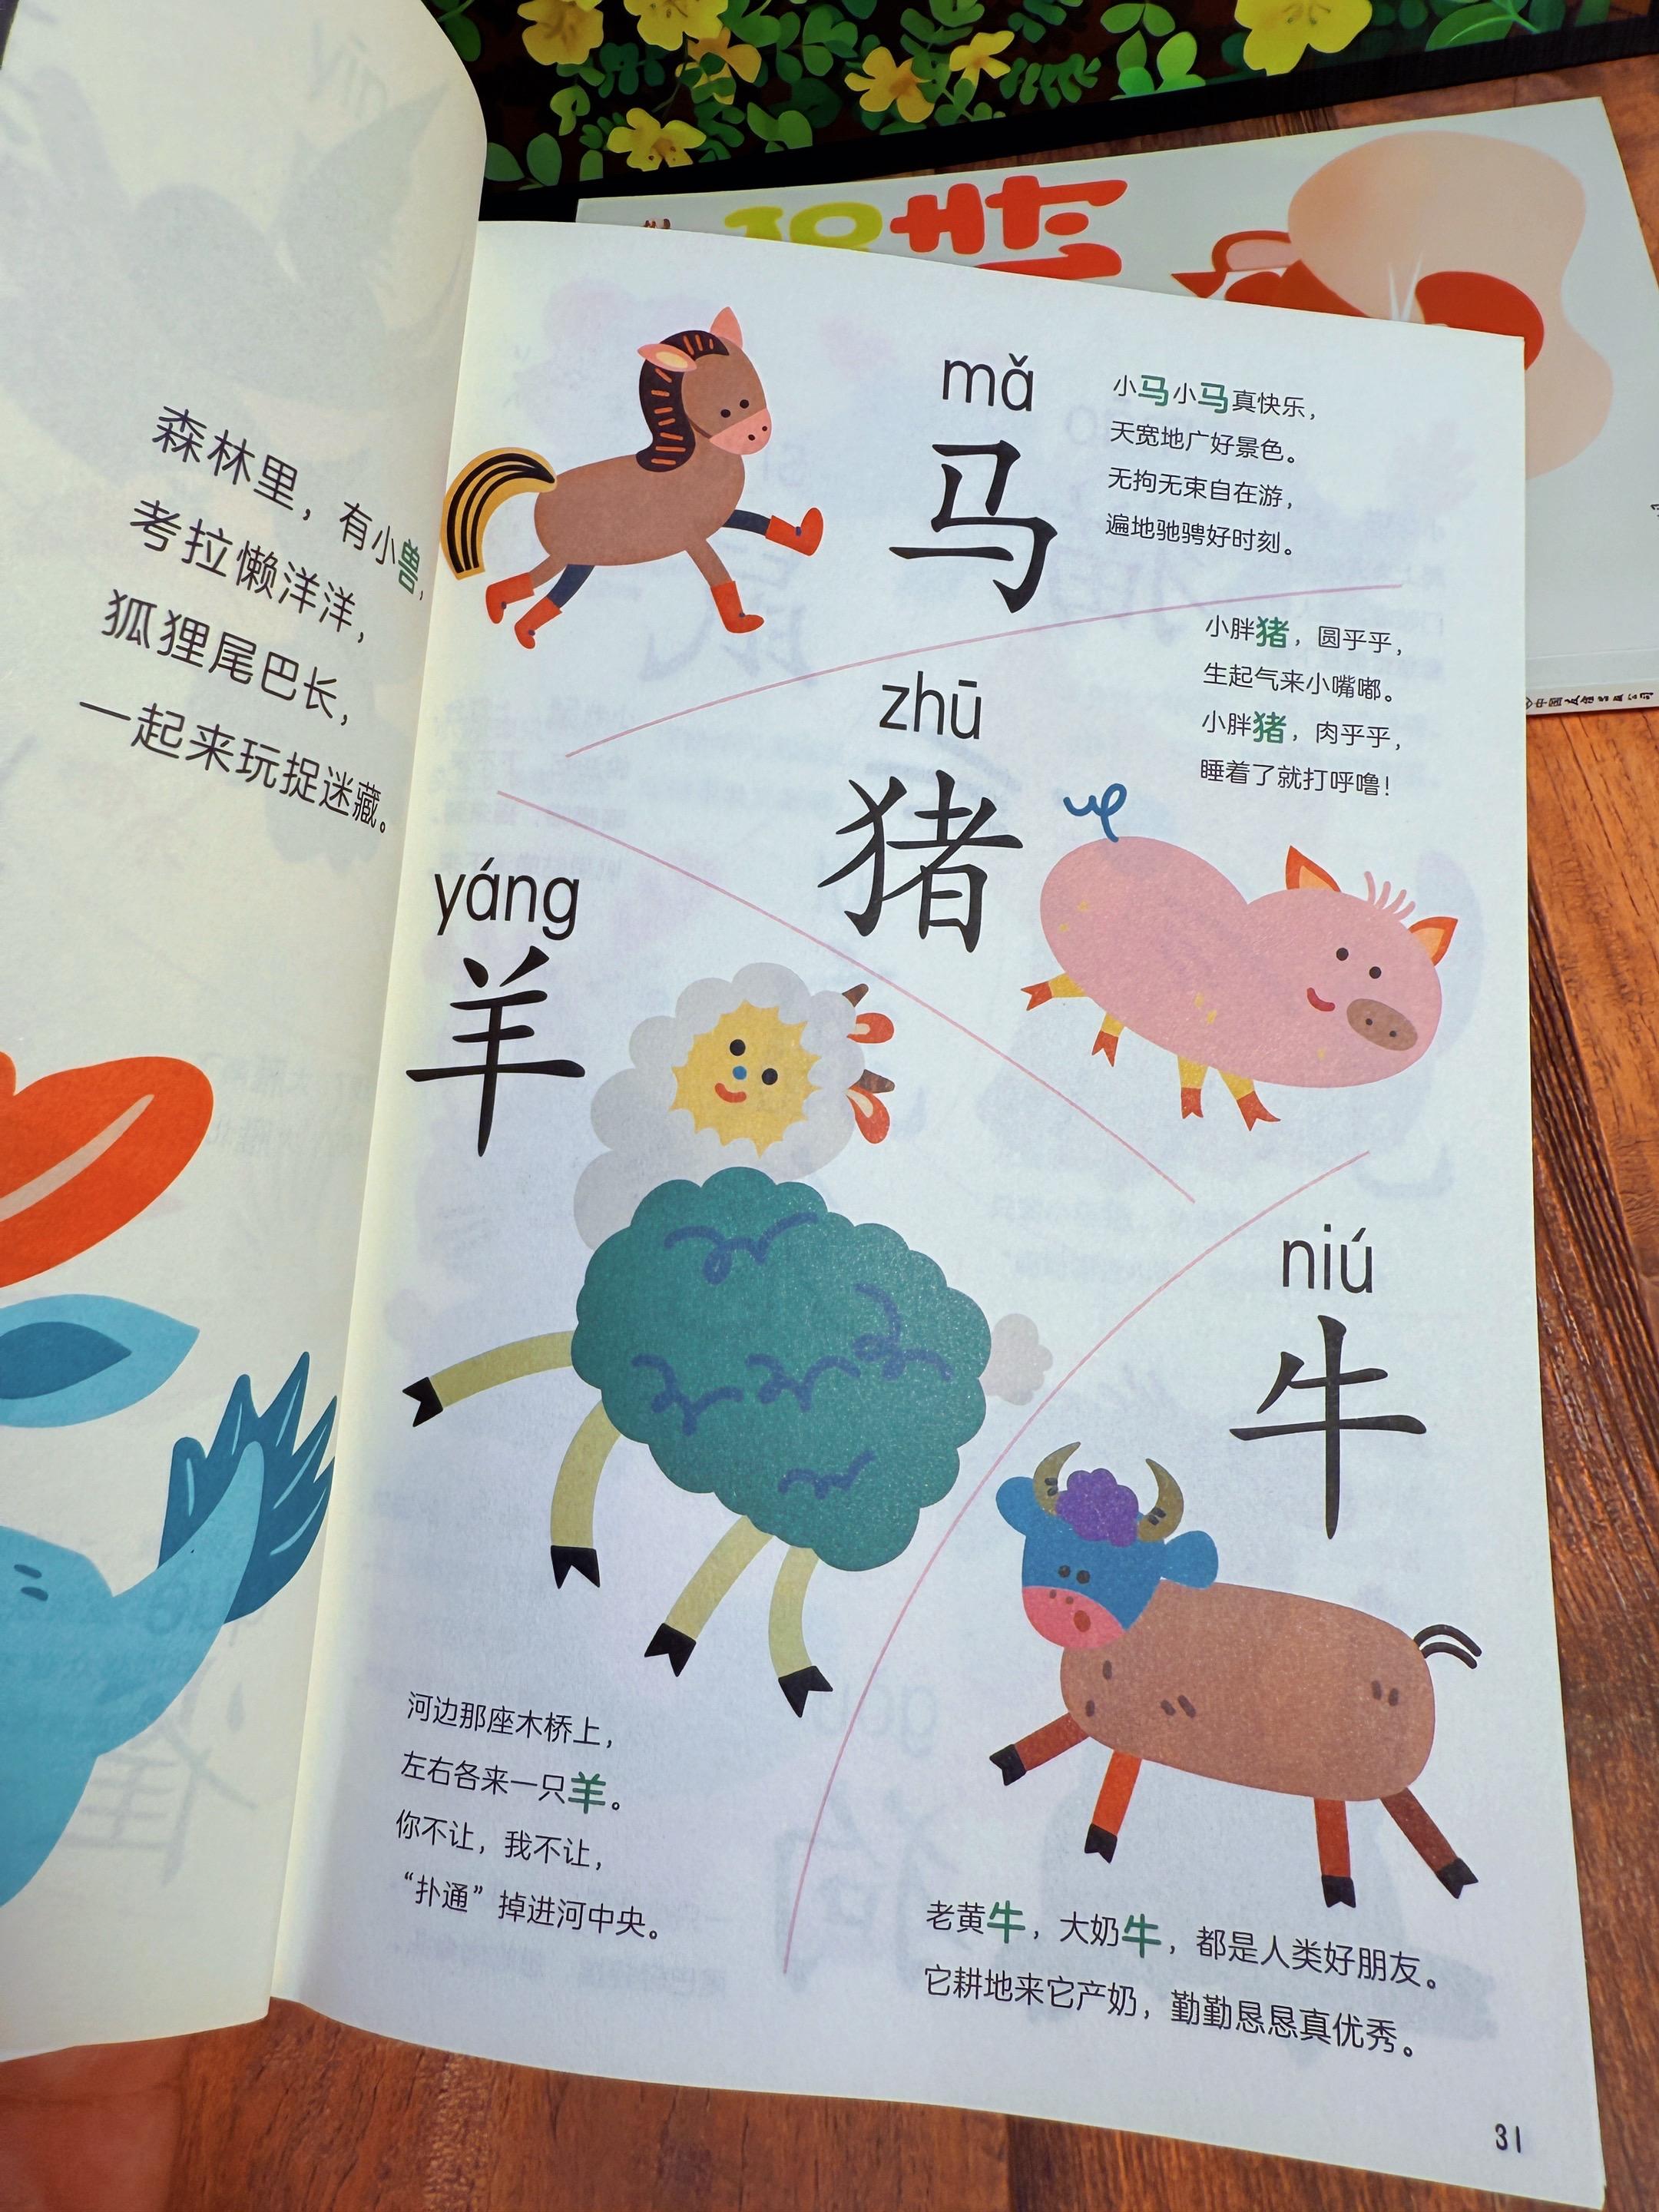 森林里，有小兽，
考拉懒洋洋，
狐狸尾巴长，
一起来玩捉迷藏。
mǎ
马
小马小马真快乐，
天宽地广好景色。
无拘无束自在游，
遍地驰骋好时刻。
zhū
猪
小胖猪，圆乎乎，
生起气来小嘴嘟。
小胖猪，肉乎乎，
睡着了就打呼噜！
yáng
羊
河边那座木桥上，
左右各来一只羊。
你不让，我不让，
“扑通”掉进河中央。
niú
牛
老黄牛，大奶牛，都是人类好朋友。
它耕地来它产奶，勤勤恳恳真优秀。
31